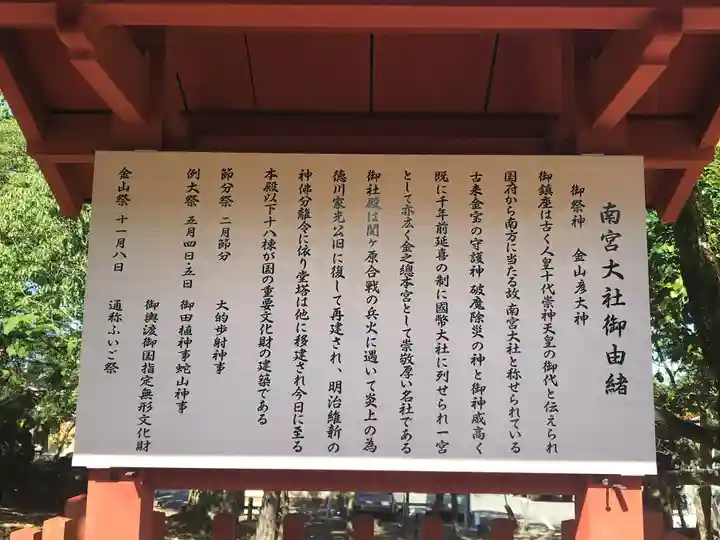 南宮大社御由緒
御祭神　金山彦大神
御鎮座は古く人皇十代崇神天皇の御代と伝えられ
国府から南方に当たる故 南宮大社と称せられている
古来金宮の守護神 破魔除災の神と御神威高く
既に千年前延喜の制に國幣大社に列せられ一宮
として亦広く金之總本宮として崇敬厚い名社である
御社殿は関ヶ原合戦の兵火に遇いて炎上の為
徳川家光公旧に復して再建され、明治維新の
神佛分離令に依り堂塔は他に移建され今日に至る
本殿以下十八棟が国の重要文化財の建築である
節分祭　二月節分　大的歩射神事
例大祭　五月四日・五日　御田植神事蛇山神事
御輿渡御国指定無形文化財
金山祭　十一月八日　通称ふいご祭